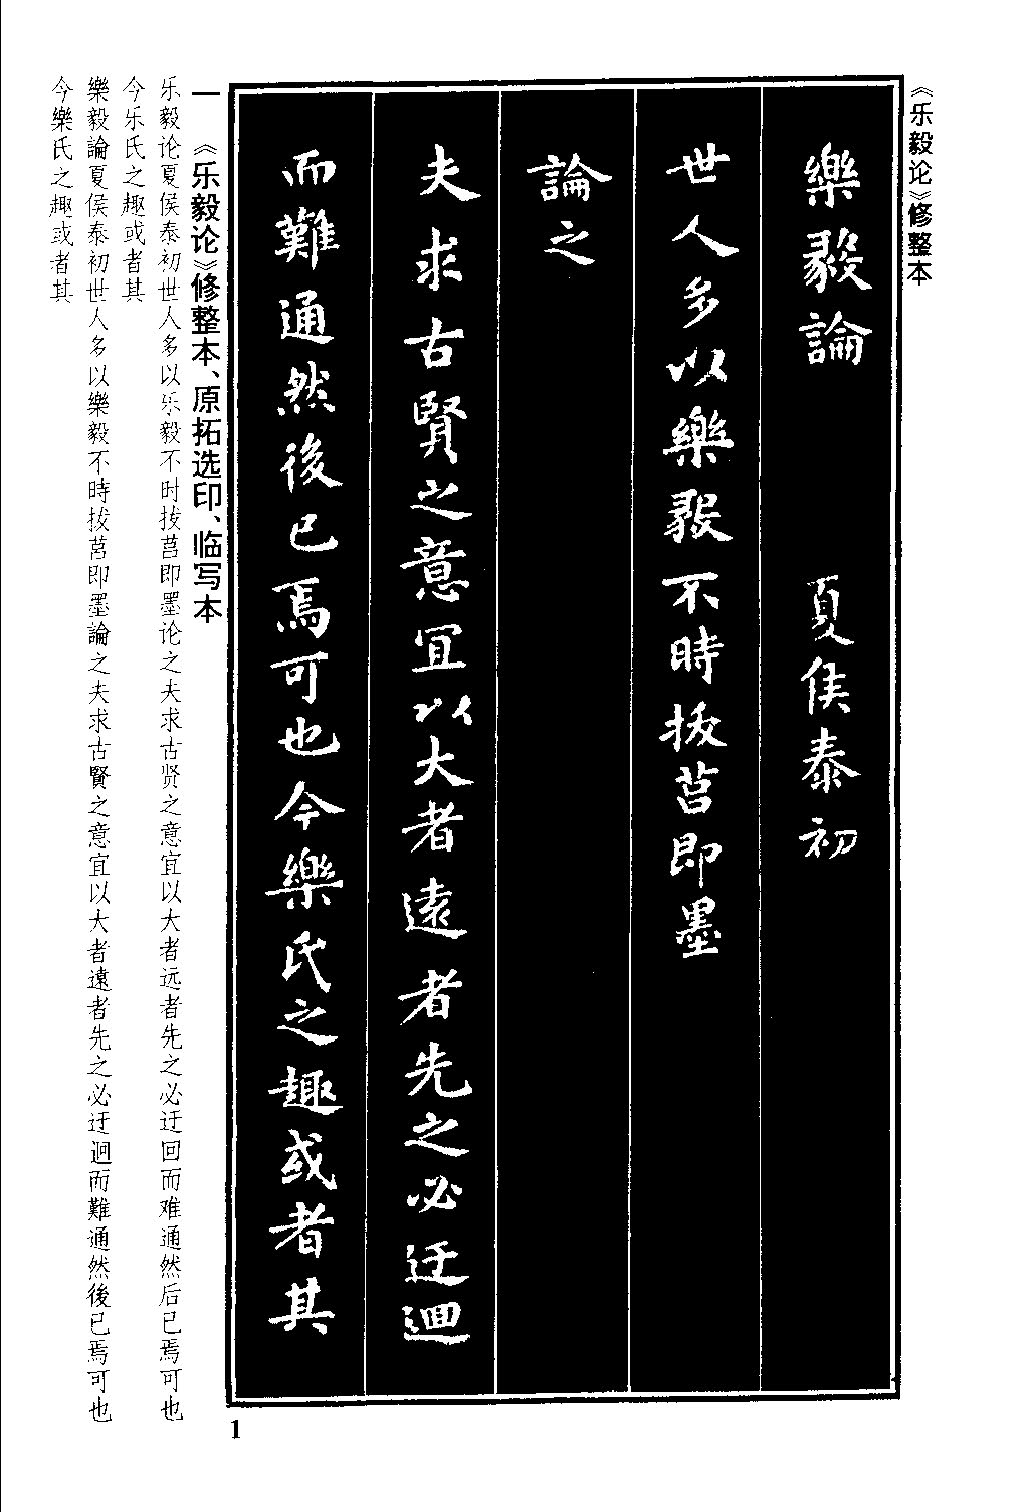 《乐毅论》修整本
樂毅論 夏侯泰初
世人多以樂毅不時拔莒即墨
論之
夫求古賢之意宜以大者遠者先之必迂迴
而難通然後已焉可也今樂氏之趣或者其
一 《乐毅论》修整本、原拓选印、临写本
乐毅论夏侯泰初世人多以乐毅不时拔莒即墨论之夫求古贤之意宜以大者远者先之必迂回而难通然后已焉可也
今乐氏之趣或者其
樂毅論夏侯泰初世人多以樂毅不時拔莒即墨論之夫求古賢之意宜以大者遠者先之必迂迴而難通然後已焉可也
今樂氏之趣或者其
1